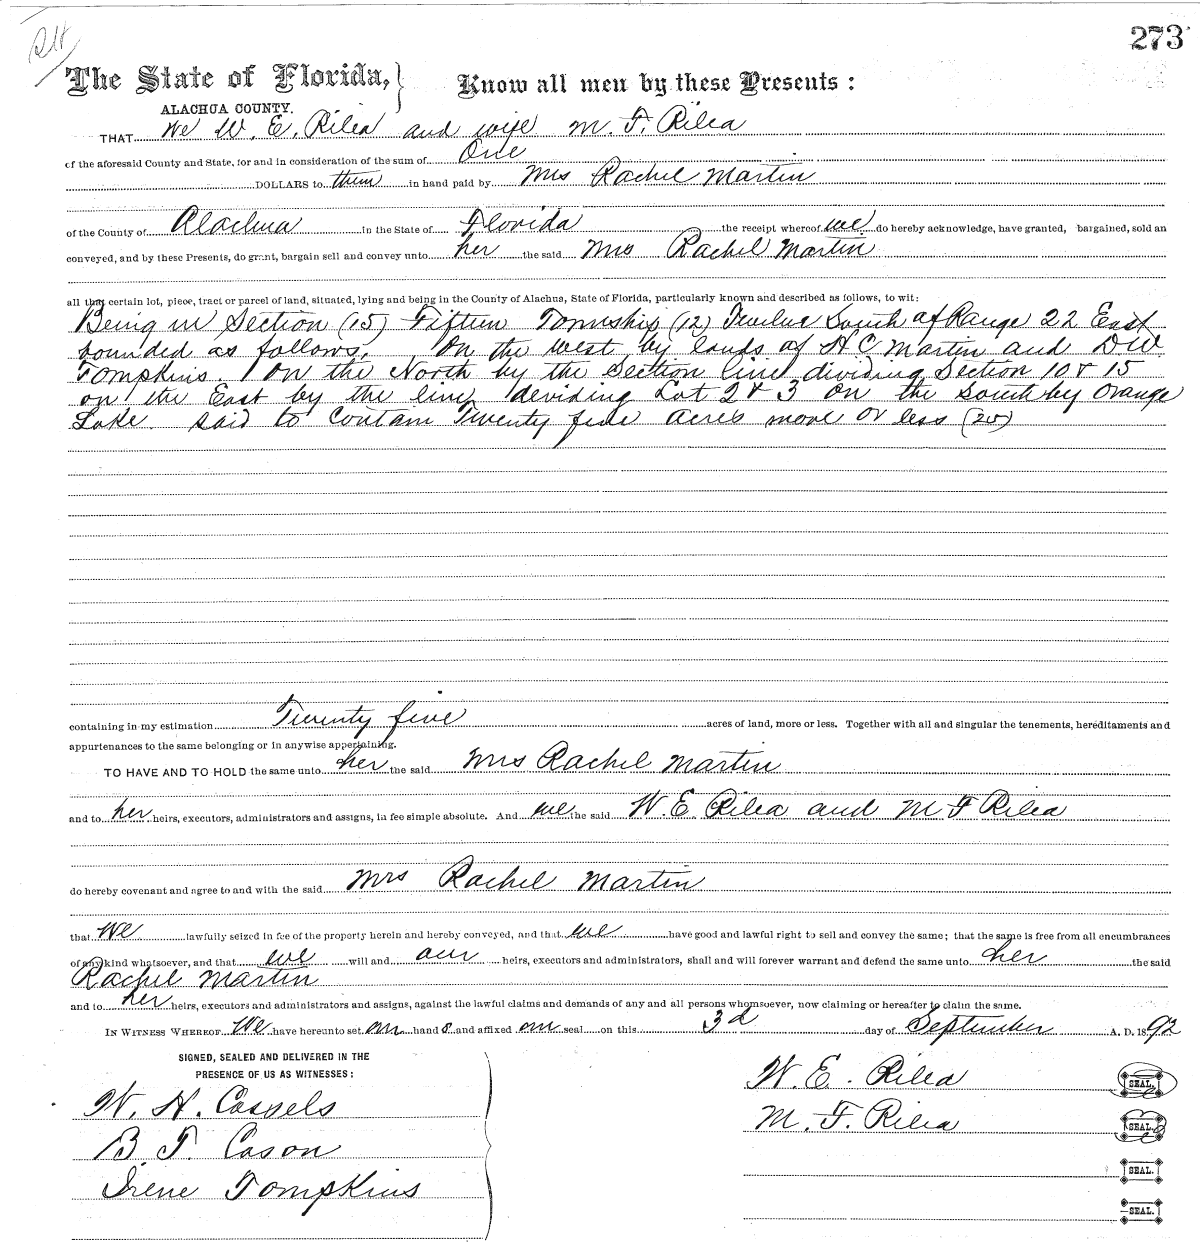 273
The State of Florida,} Know all men by these Presents:
ALACHUA COUNTY.
THAT We W. E. Rilea and wife M. F. Rilea
of the aforesaid County and State, for and in consideration of the sum of One
DOLLARS to them in hand paid by Mrs Rachel Martin
of the County of Alachua in the State of Florida the receipt whereof we do hereby acknowledge, have granted, bargained, sold an
conveyed, and by these Presents, do grant, bargain sell and convey unto her the said Mrs Rachel Martin
all that certain lot, piece, tract or parcel of land, situated, lying and being in the County of Alachua, State of Florida, particularly known and described as follows, to wit:
Being in Section (15) Fifteen Township (12) Twelve South of Range 22 East
bounded as follows, On the west by lands of H C Martin and D W
Tompkins, on the North by the Section line dividing Section 10 & 15
on the East by the line deviding Lot 2 & 3 on the South by Orange
Lake. said to contain Twenty five acres more or less (25)
containing in my estimation Twenty five acres of land, more or less. Together with all and singular the tenements, hereditaments and
appurtenances to the same belonging or in anywise appertaining.
TO HAVE AND TO HOLD the same unto her the said Mrs Rachel Martin
and to her heirs, executors, administrators and assigns, in fee simple absolute. And we the said W. E. Rilea and M F Rilea
do hereby covenant and agree to and with the said Mrs Rachel Martin
that We lawfully seized in fee of the property herein and hereby conveyed, and that we have good and lawful right to sell and convey the same; that the same is free from all encumbrances
of any kind whatsoever, and that we will and our heirs, executors and administrators, shall and will forever warrant and defend the same unto her the said
Rachel Martin
and to her heirs, executors and administrators and assigns, against the lawful claims and demands of any and all persons whomsoever, now claiming or hereafter to claim the same.
IN WITNESS WHEREOF We have hereunto set our hand s and affixed our seal on this 3d day of September A. D. 1892
SIGNED, SEALED AND DELIVERED IN THE
PRESENCE OF US AS WITNESSES:
W. H. Cassels
B. T. Cason
Irene Tompkins
W. E. Rilea SEAL.
M. F. Rilea SEAL.
SEAL.
SEAL.